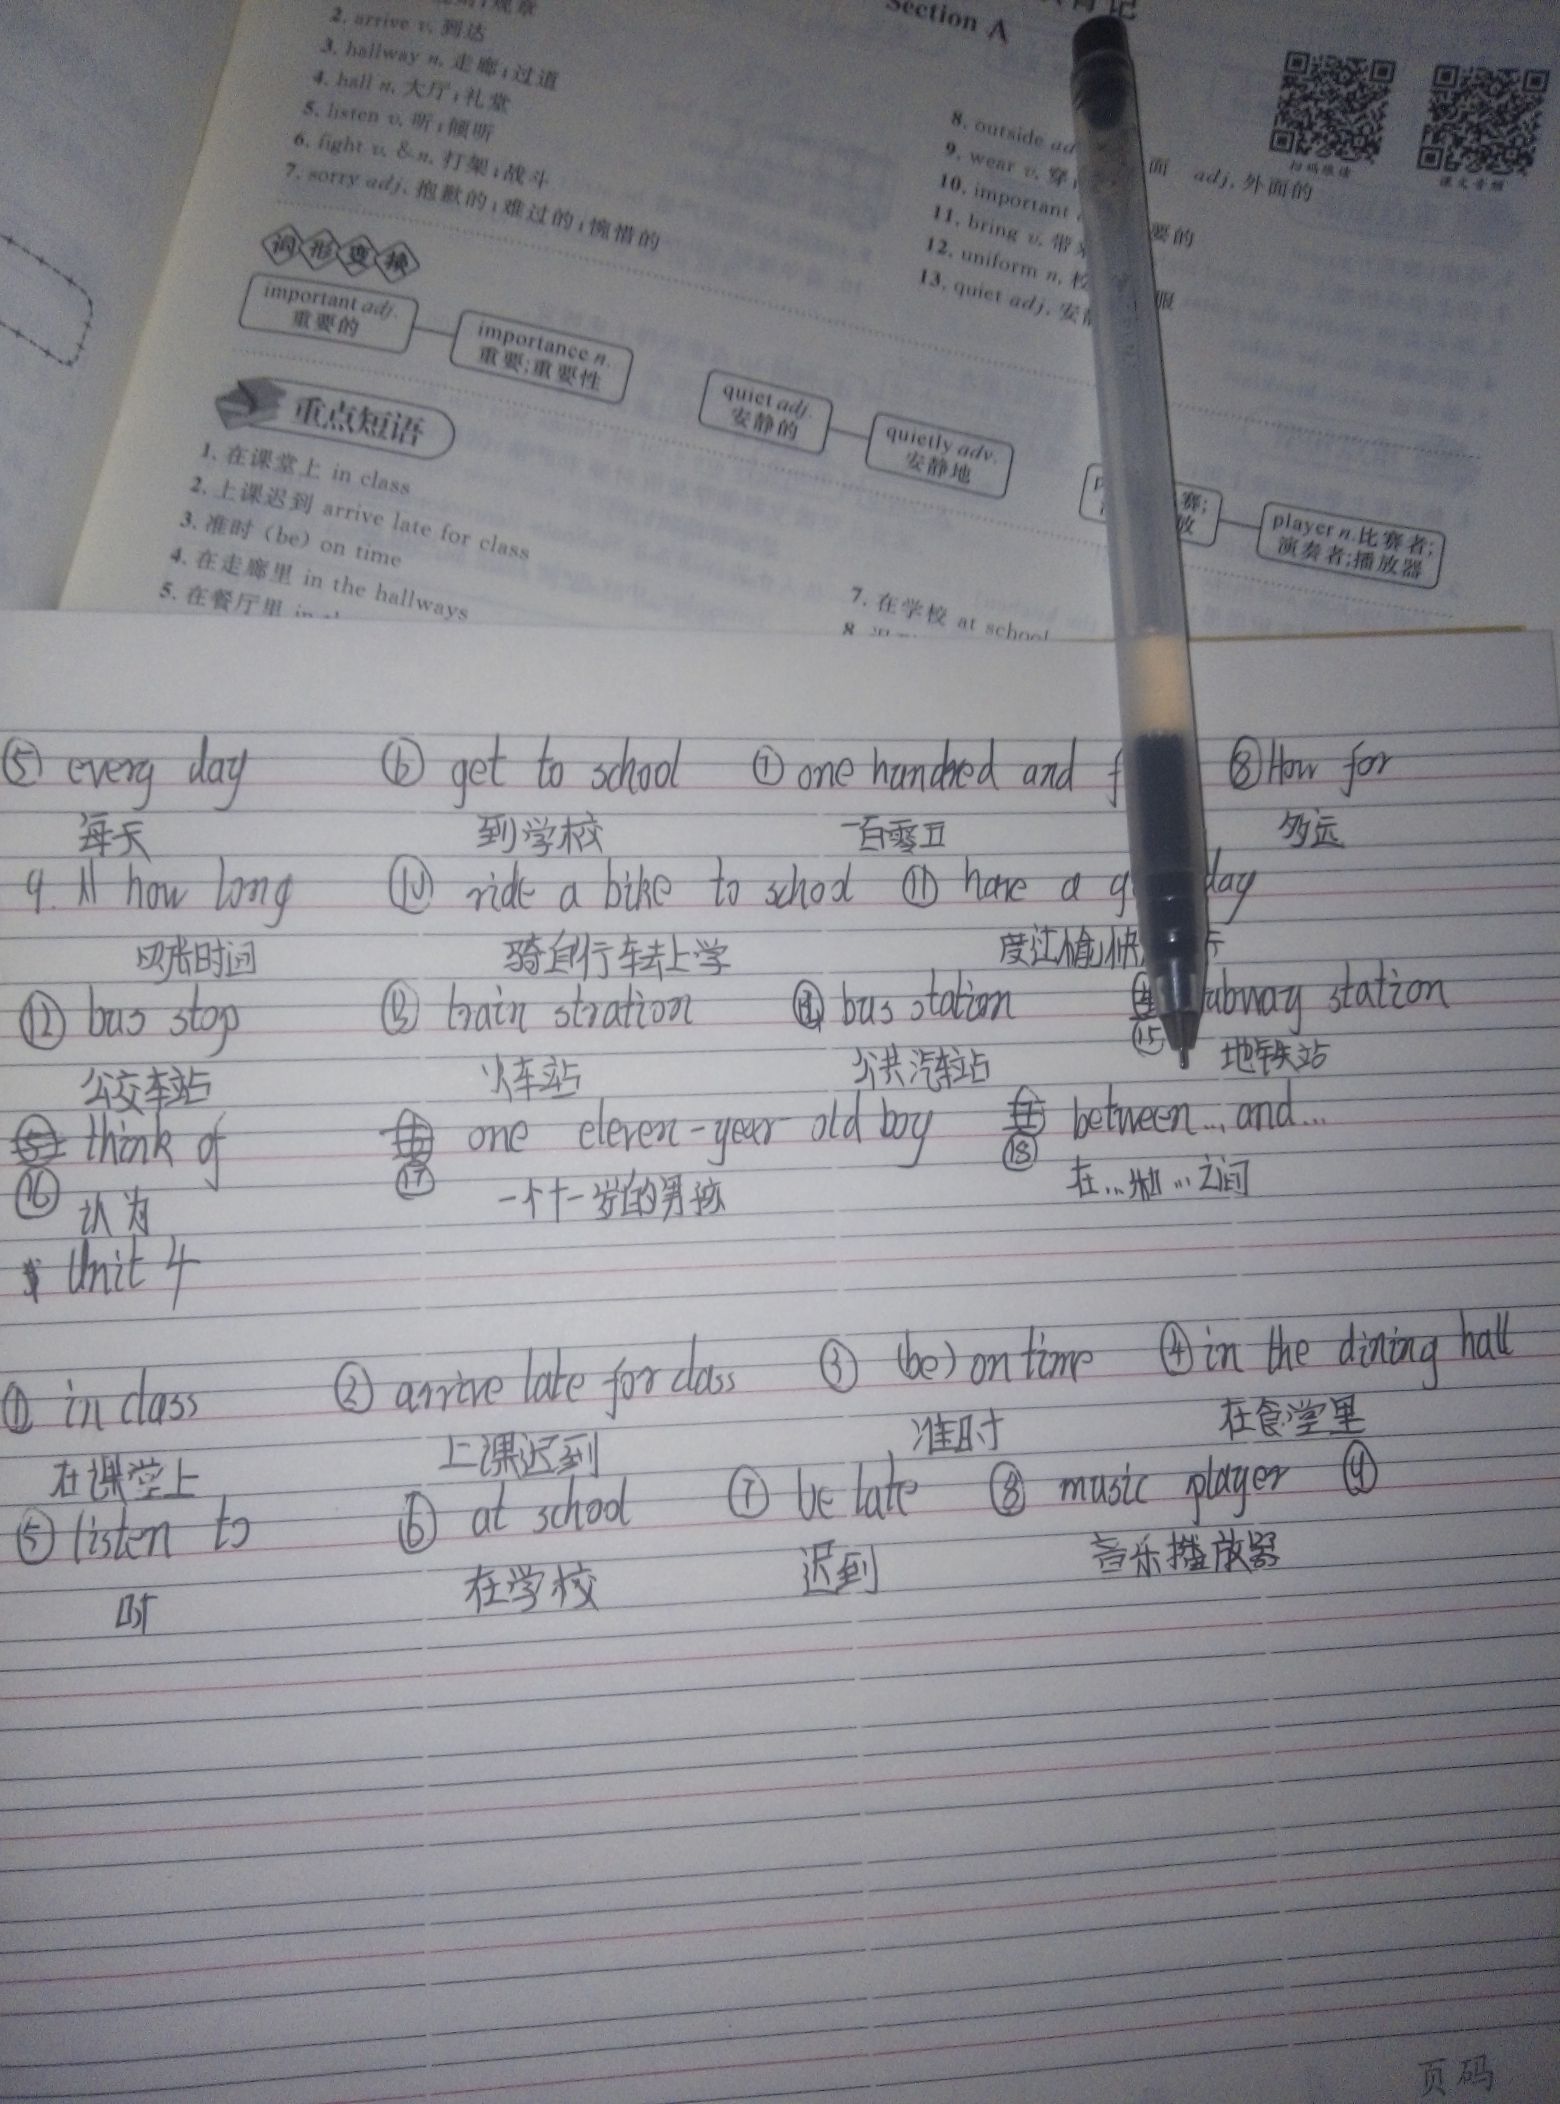 Section A
2. arrive v. 到达
3. hallway n. 走廊；过道
4. hall n. 大厅；礼堂
5. listen v. 听；倾听
6. fight v. & n. 打架；战斗
7. sorry adj. 抱歉的；难过的；惋惜的
8. outside 面 adj. 外面的
9. wear v. 穿
10. important 要的
11. bring v. 带
12. uniform n. 校 服
13. quiet adj. 安
扫码跟读
课文音频
词形变换
important adj.
重要的
importance n.
重要；重要性
quiet adj.
安静的
quietly adv.
安静地
赛；
放
player n. 比赛者；
演奏者；播放器
重点短语
1. 在课堂上 in class
2. 上课迟到 arrive late for class
3. 准时（be）on time
4. 在走廊里 in the hallways
5. 在餐厅里 in
7. 在学校 at school
8.
⑤ every day ⑥ get to school ⑦ one hundred and f ⑧ How for
每天 到学校 一百零五 多远
9. how long ⑩ ride a bike to school ⑪ have a g day
多长时间 骑自行车去上学 度过愉快
⑫ bus stop ⑬ train stration ⑭ bus station ⑮ subway station
公交车站 火车站 公共汽车站 地铁站
⑯ think of ⑰ one eleven-year-old boy ⑱ between...and...
认为 一个十一岁的男孩 在...和...之间
Unit 4
① in class ② arrive late for class ③ (be) on time ④ in the dining hall
在课堂上 上课迟到 准时 在食堂里
⑤ listen to ⑥ at school ⑦ be late ⑧ music player ⑨
听 在学校 迟到 音乐播放器
页码